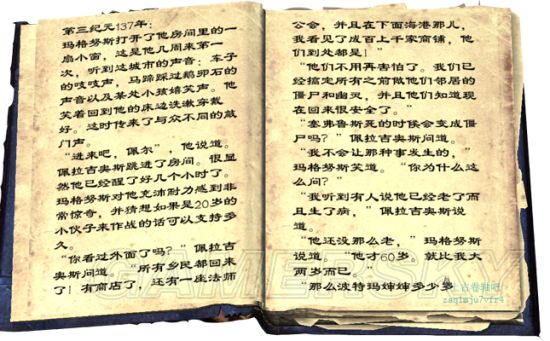 第三纪元137年：
玛格努斯打开了他房间里的一
扇小窗，这是他几周来第一
次，听到这城市的声音：车子
的吱吱声，马蹄踩过鹅卵石的
声音以及某处小孩嬉笑声。他
笑着回到他的床边洗漱穿戴
好。这时传来了与众不同的敲
门声。
“进来吧，佩尔”，他说道。
佩拉吉奥斯跳进了房间。很显
然他已经醒了好几个小时了。
玛格努斯对他充沛耐力感到非
常惊奇，并猜想如果是20岁的
小伙子来作战的话可以支持多
久。
“你看过外面了吗？”佩拉吉
奥斯问道。“所有乡民都回来
了！有商店了，还有一座法师
公会，并且在下面海港那儿，
我看见了成百上千家商铺，他
们到处都是！”
“他们不用再害怕了。我们已
经搞定所有之前做他们邻居的
僵尸和幽灵，并且他们知道现
在回来很安全了。”
“塞弗鲁斯死的时候会变成僵
尸吗？”佩拉吉奥斯问道。
“我不会让那种事发生的，”
玛格努斯笑道。“你为什么这
么问？”
“我听到有人说他已经老了而
且生了病，”佩拉吉奥斯说
道。
“他还没那么老，”玛格努斯
说道。“他才60岁，就比我大
两岁而已。”
“那么波特玛婶婶多少岁
GAMERSKY
上古卷轴吧